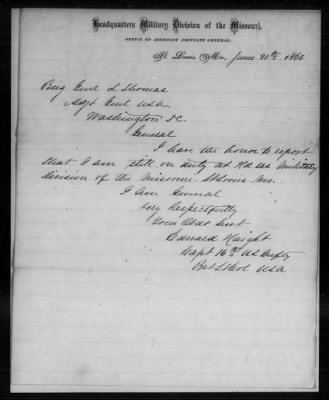 Headquarters Military Division of the Missouri,
OFFICE OF ASSISTANT ADJUTANT GENERAL.
St. Louis, Mo., June 30th 1866
Brig Genl L Thomas
Adjt Genl USA
Washington DC.
General
I have the honor to report
that I am still on duty at Hd Qrs Military
Division of the Missouri St Louis Mo.
I am General
Very Respectfully
Your Obdt Servt
Edward Haight
Capt 16th US Infty
Bvt Lt Col USA